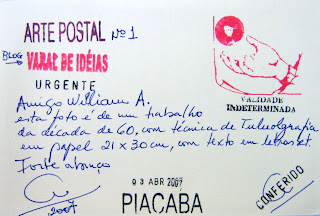 ARTE POSTAL Nº 1
BLOG VARAL DE IDÉIAS
URGENTE
VALIDADE
INDETERMINADA
Amigo William A.
esta foto é de um trabalho
da década de 60, com técnica de
em papel 21 x 30 cm, com texto em letraset
Forte abraço
2007
03 ABR 2007
PIACABA
CONFERIDO